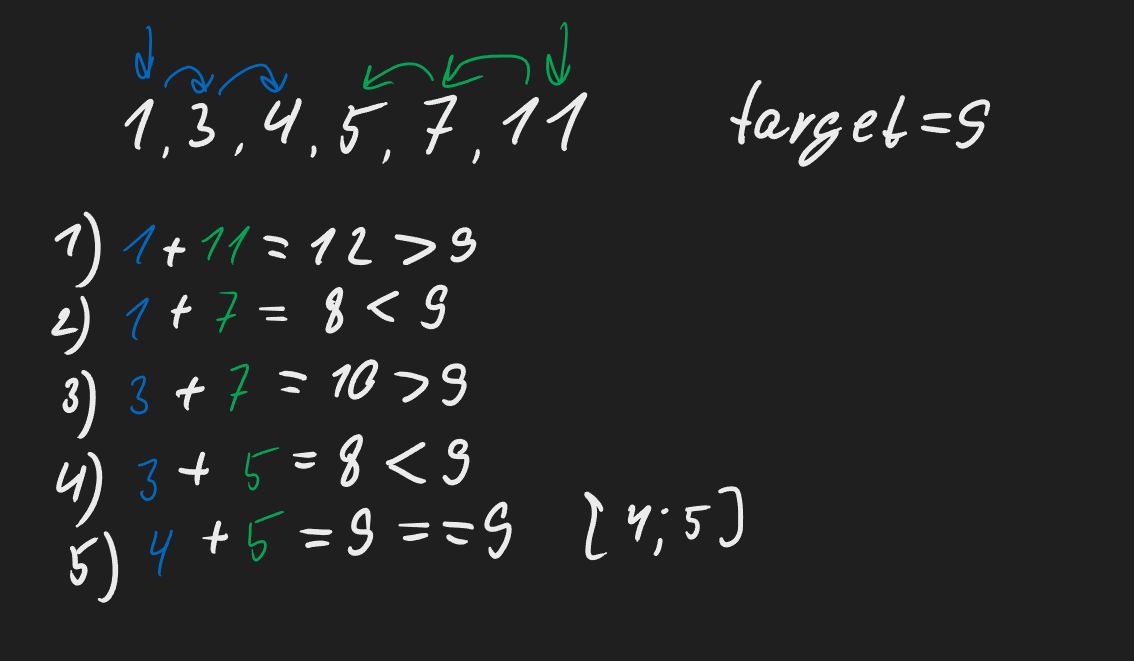 1, 3, 4, 5, 7, 11 target = 9
1) 1 + 11 = 12 > 9
2) 1 + 7 = 8 < 9
3) 3 + 7 = 10 > 9
4) 3 + 5 = 8 < 9
5) 4 + 5 = 9 == 9 [4; 5]